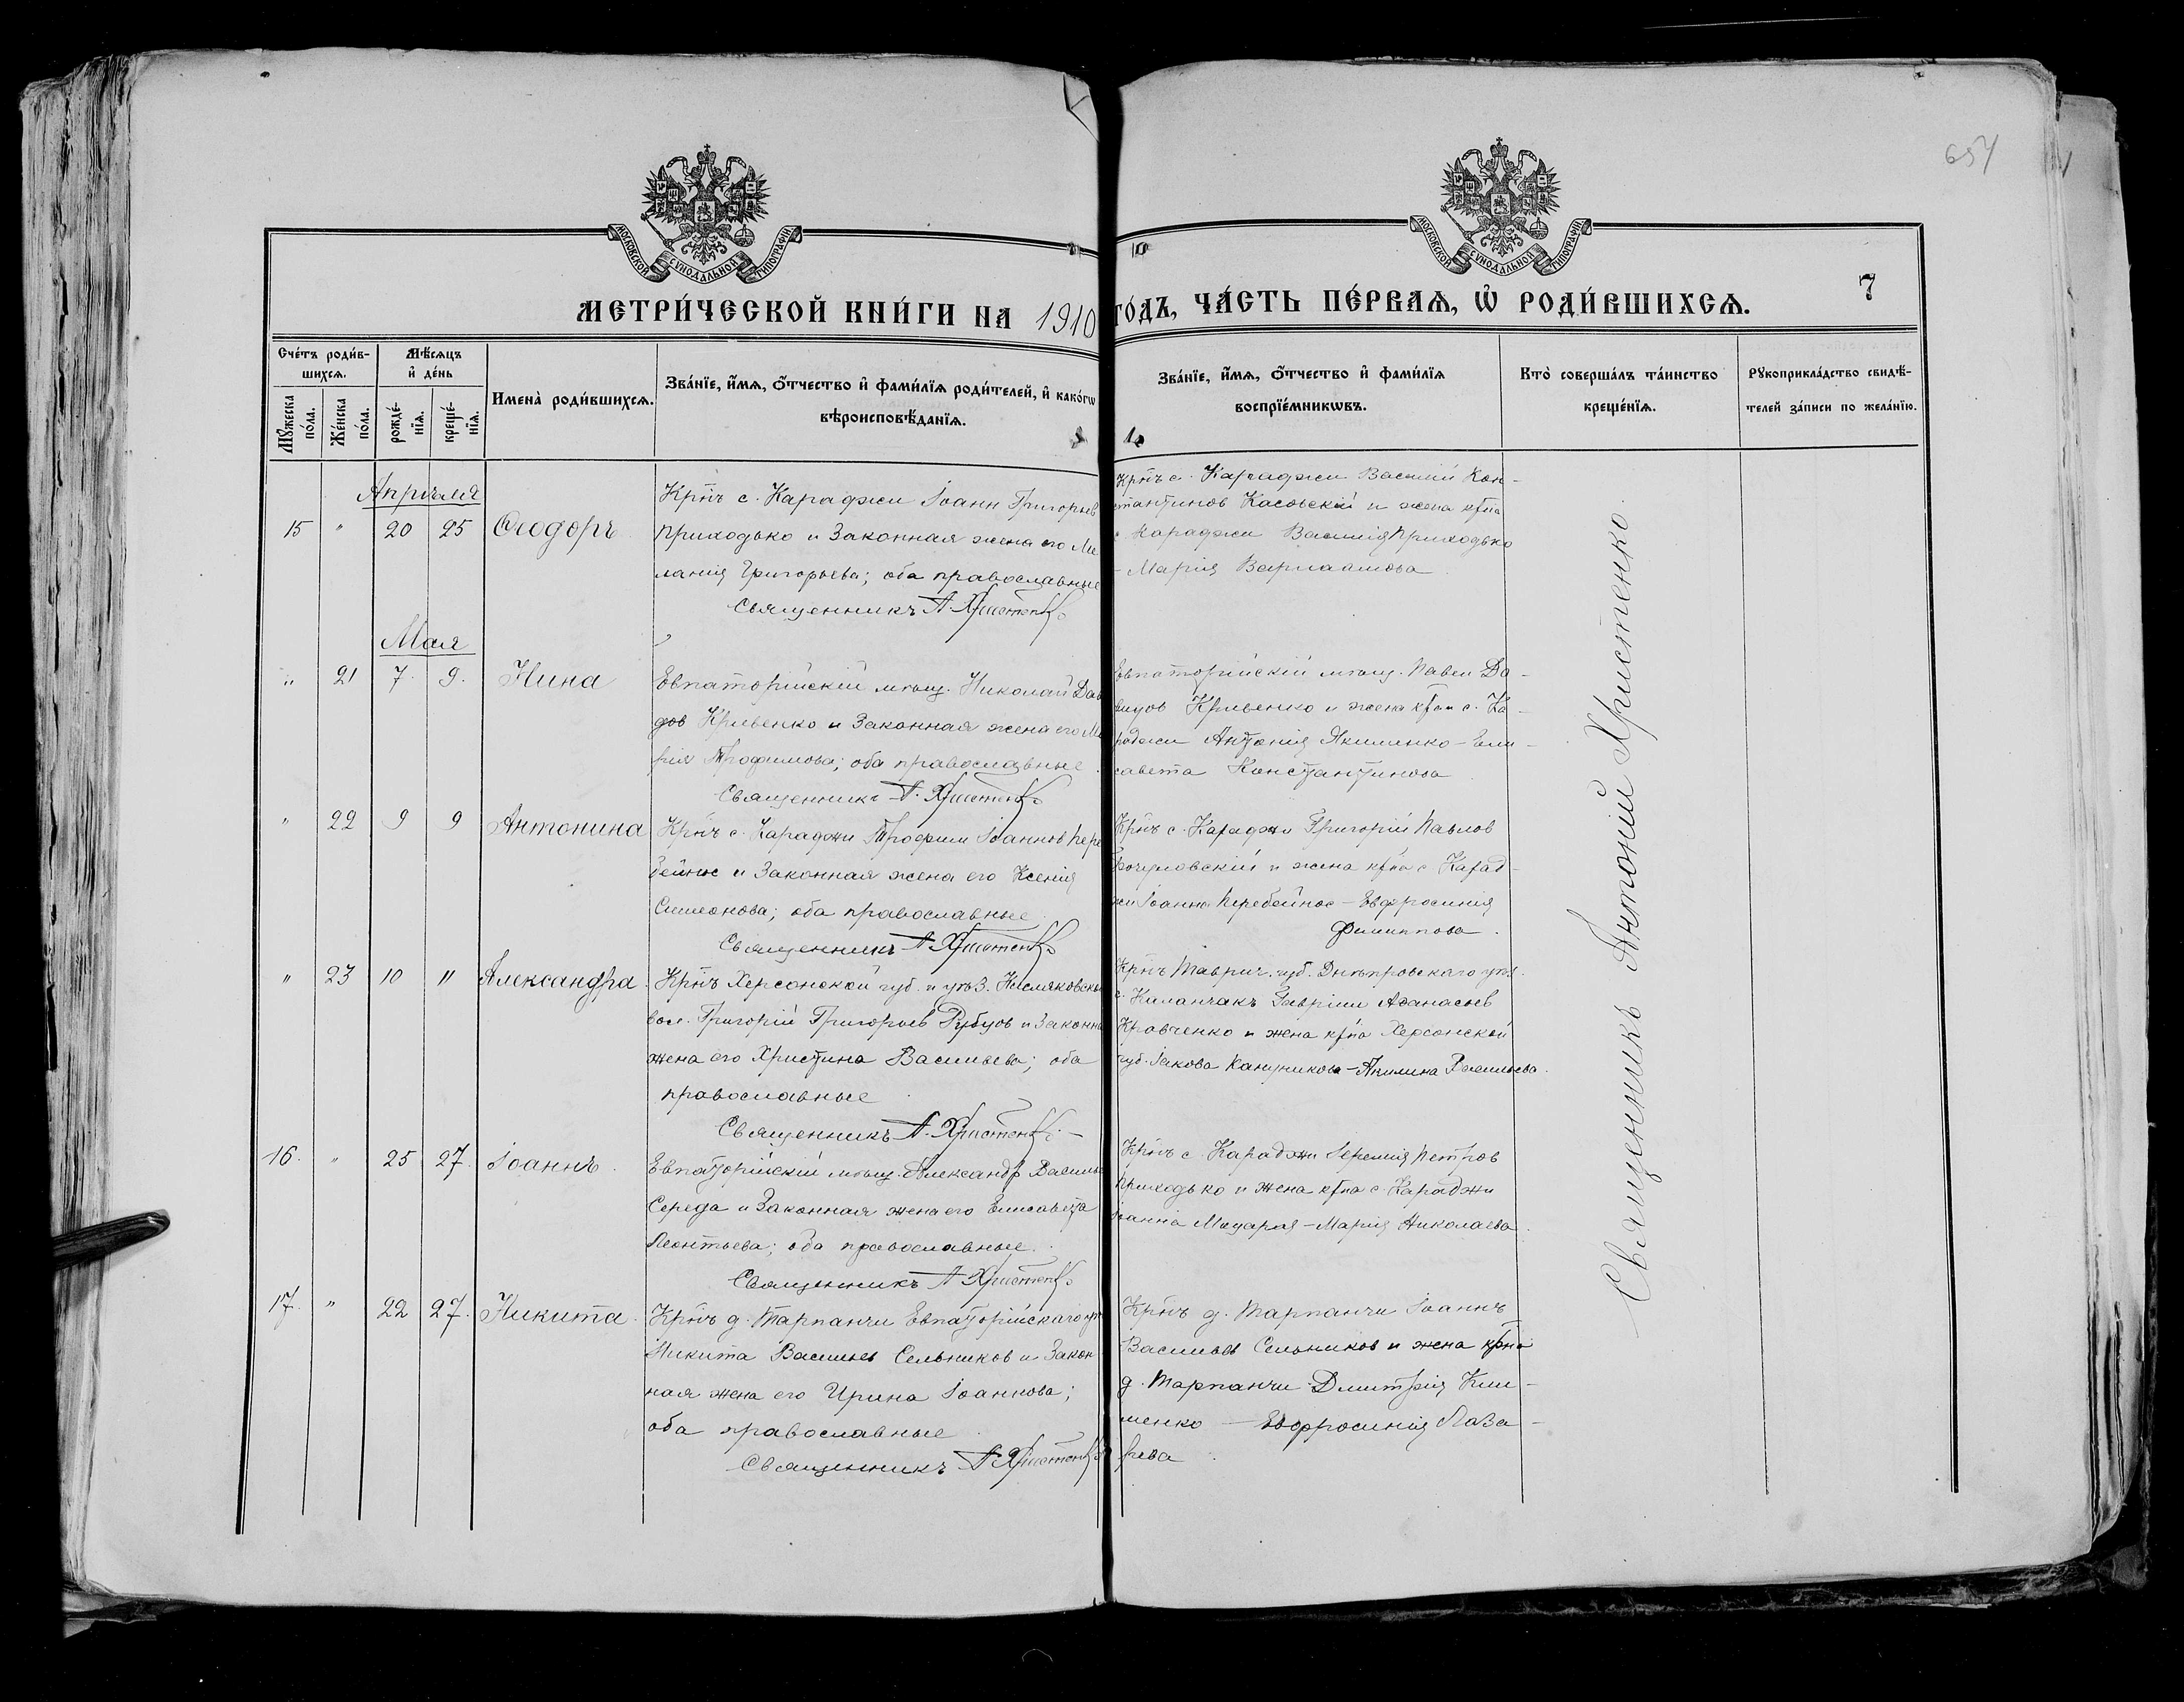 654
МОСКОВСКОЙ СѴНОДАЛЬНОЙ ТИПОГРАФІИ
МОСКОВСКОЙ СѴНОДАЛЬНОЙ ТИПОГРАФІИ
МЕТРИ́ЧЕСКОЙ КНИ́ГИ НА 1910 ГО́ДЪ, ЧА́СТЬ ПЕ́РВАѦ, Ѡ҆ РОДИ́ВШИХСѦ.
7
Сче́тъ роди́в-
шихсѧ.
Мѣ́сѧцъ
и҆ де́нь
Мꙋ́жеска
по́ла.
Же́нска
по́ла.
рожде́-
нїѧ.
креще́-
нїѧ.
Имена̀ роди́вшихсѧ.
Зва́нїе, и҆́мѧ, ѻ҆́тчество и҆ фами́лїѧ роди́телей, и҆ како́гѡ
вѣроисповѣ́данїѧ.
Зва́нїе, и҆́мѧ, ѻ҆́тчество и҆ фами́лїѧ
воспрїе́мникѡвъ.
Кто̀ соверша́лъ та́инство
креще́нїѧ.
Рꙋкоприкла́дство свидѣ́-
телей за́писи по жела́нїю.
Апрѣля
15 " 20 25 Ѳеодоръ
Кр̃нъ с. Караджи Іоанн Григорьев
Приходько и Законная жена его Ме
ланія Григорьева; оба православные
Священникъ А. Христенко
Кр̃нъ с. Караджи Василій Кон-
стантинов Касовскій и жена кр̃на
с. Караджи Василія Приходько
- Марія Варлаамова
Мая
" 21 7. 9. Нина
Евпаторійскій мѣщ. Николай Дав
дов Кривенко и Законная жена его Ма
рія Трофимова; оба православные.
Священникъ А. Христенко
Евпаторійскій мѣщ. Павел Да-
видов Кривенко и жена кр̃на с. Ка-
раджи Антонія Якименко - Ели-
савета Константинова
" 22 9 9 Антонина
Кр̃нъ с. Караджи Трофим Іоаннов Пере
бейнос и Законная жена его Ксенія
Симеонова; оба православные.
Священникъ А. Христенко
Кр̃нъ с. Караджи Григорій Павлов
и жена кр̃на с. Карад-
жи Іоанна Перебейнос - Евфросинія
Филиппова.
" 23 10 11 Александра.
Кр̃нъ Херсонской губ. и уѣз.
вол. Григорій Григорьев Рубцов и Законна
жена его Христина Васильева; оба
православные
Священникъ А. Христенко. -
Кр̃нъ Таврич. губ. Днѣпровскаго уѣз.
с. Каланчакъ Гавріил Аѳанасьев
Кравченко и жена кр̃на Херсонской
губ. Іакова - Акилина Васильева.
16. " 25 27. Іоаннъ.
Евпаторійскій мѣщ. Александр Василь
Середа и Законная жена его Елисавета
Леонтьева; оба православные.
Священникъ А. Христенко
Кр̃нъ с. Караджи Іеремія Петров
Приходько и жена кр̃на с. Караджи
Іоанна - Марія Николаева.
17. " 22 27. Никита.
Кр̃нъ д. Тарпанчи Евпаторійскаго уѣ
Никита Васильев Сельников и Закон
ная жена его Ирина Іоаннова;
оба православные.
Священникъ А. Христенко
Кр̃нъ д. Тарпанчи Іоаннъ
Васильев Сельников и жена кр̃на
д. Тарпанчи Димитрія Кли-
менко - Евфросинія Лаза-
рева.
Священникъ Антоній Христенко.